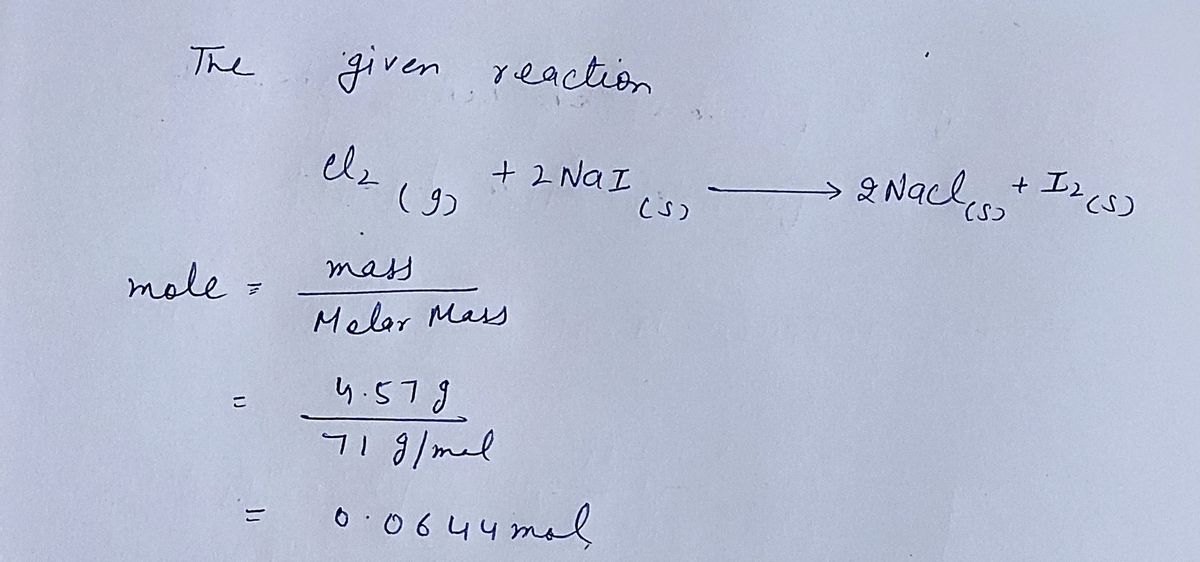 The given reaction
Cl₂ (g) + 2 NaI (s) ⟶ 2 NaCl (s) + I₂ (s)
mole = mass / Molar Mass
= 4.57 g / 71 g/mol
= 0.0644 mol